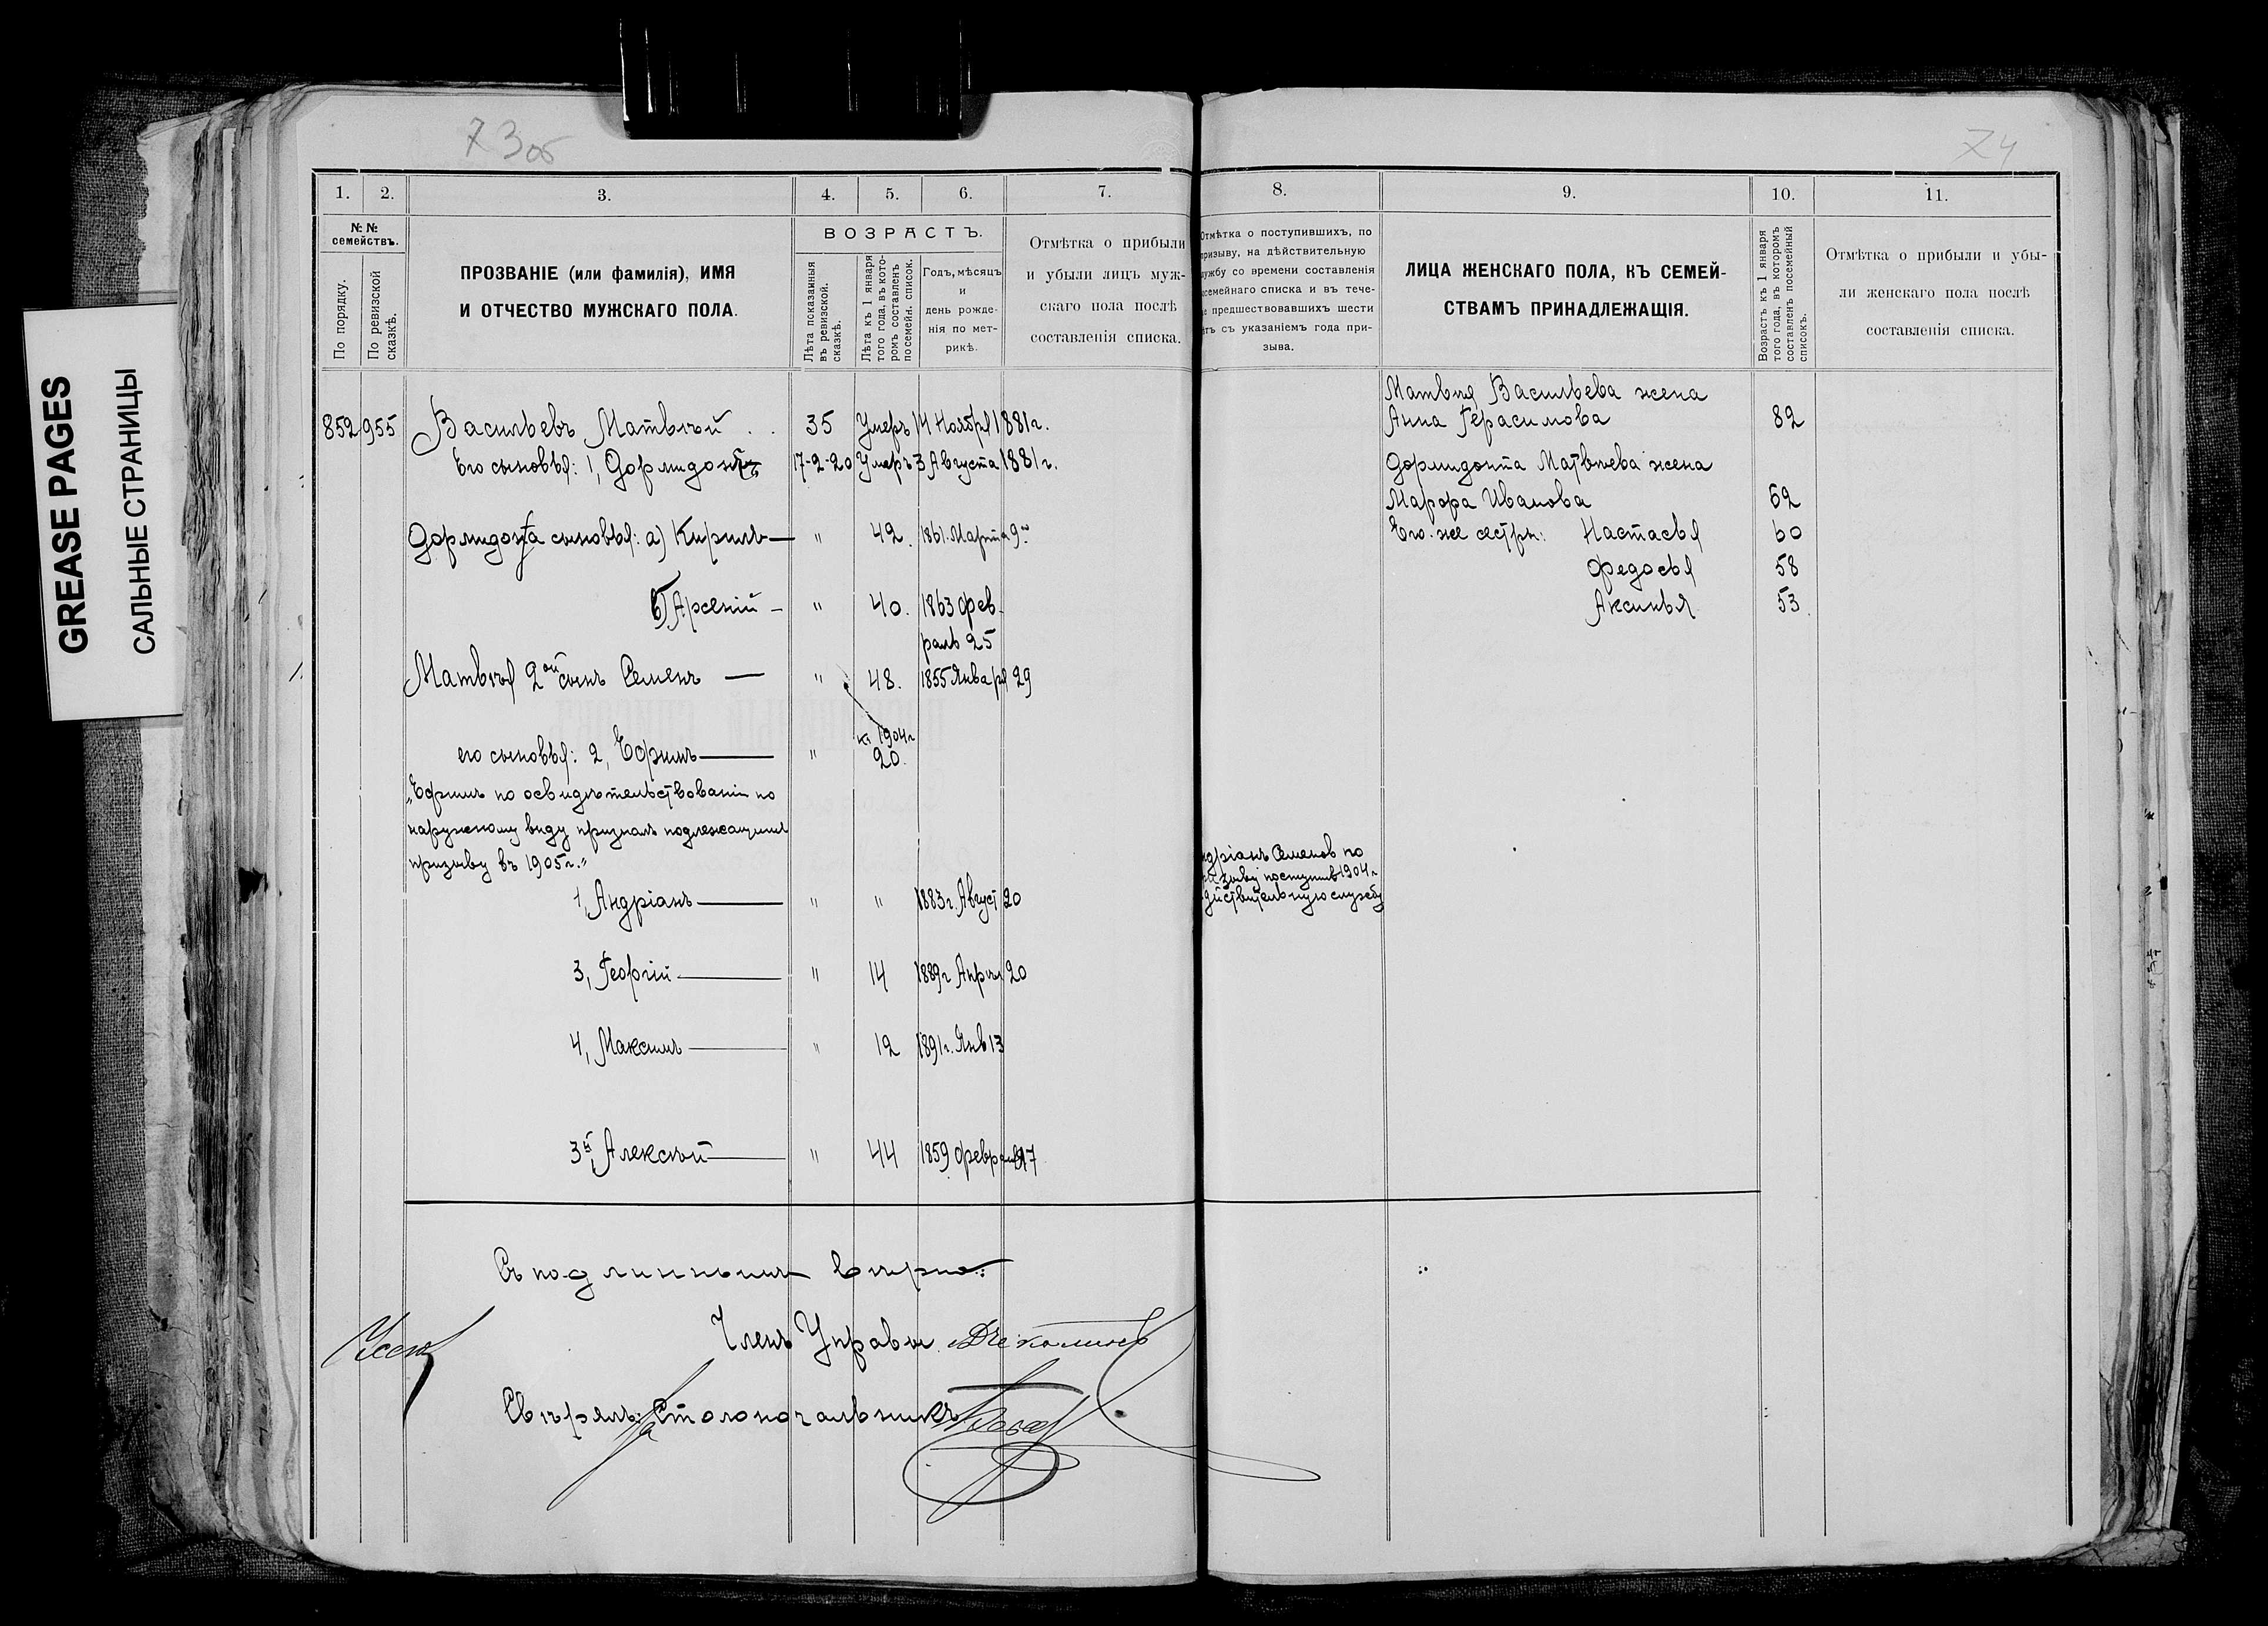 GREASE PAGES
САЛЬНЫЕ СТРАНИЦЫ
73об
74
1. 2. 3. 4. 5. 6. 7.
№ №
семействъ.
По порядку.
По ревизской
сказкѣ.
ПРОЗВАНІЕ (или фамилія), ИМЯ
И ОТЧЕСТВО МУЖСКАГО ПОЛА.
ВОЗРАСТЪ.
Лѣта показанныя
въ ревизской.
сказкѣ.
Лѣта къ 1 января
того года, въ кото-
ромъ составленъ
посемейн. список.
Годъ, мѣсяцъ
и
день рожде-
нія по мет-
рикѣ.
Отмѣтка о прибыли
и убыли лицъ муж-
скаго пола послѣ
составленія списка.
852 955 Васильевъ Матвѣй . . 35 Умеръ 14 Ноября 1881г.
Его сыновья: 1, Дормидонтъ 17-2-20 Умеръ 3 Августа 1881г.
Дормидонта сыновья: а) Кирилъ — " 42. 1861. Марта 9
б) Арсеній — " 40. 1863 Фев-
раль 25
Матвѣя 2ой сынъ Семенъ — " 48. 1855 Января 29
къ 1904г
его сыновья: 2, Ефимъ — " 20.
„Ефимъ по освидѣтельствованіи по
наружному виду признанъ подлежащимъ
призыву въ 1905г.“
1, Андріанъ — " " 1883г. Август 20
3, Георгій — " 14 1889г Апрѣл 20
4, Максимъ — " 12 1891г. Янв 13
3й, Алексѣй — " 44 1859 Февраля 17
Съ подлиннымъ вѣрно:
Членъ Управы
Свѣрялъ: Столоначальникъ
8. 9. 10. 11.
Отмѣтка о поступившихъ, по
призыву, на дѣйствительную
службу со времени составленія
посемейнаго списка и въ тече-
е предшествовавшихъ шести
лѣтъ съ указаніемъ года при-
зыва.
ЛИЦА ЖЕНСКАГО ПОЛА, КЪ СЕМЕЙ-
СТВАМЪ ПРИНАДЛЕЖАЩІЯ.
Возрастъ къ 1 января
того года, въ которомъ
составленъ посемейный
списокъ.
Отмѣтка о прибыли и убы-
ли женскаго пола послѣ
составленія списка.
Матвѣя Васильева жена
Анна Герасимова 82
Дормидонта Матвѣева жена
Марфа Иванова 62
Его же сестры: Настасья 60
Федосья 58
Аксинья 53
ндріанъ Семенов по
призыву поступилъ 1904г
дѣйствительную службу